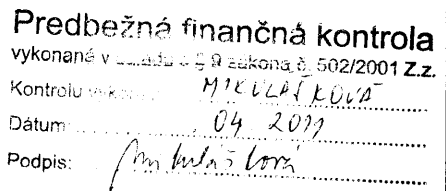 Predbežná finančná kontrola
vykonaná v súlade s § 9 zákona č. 502/2001 Z.z.
Kontrolu MIKULÁŠKOVÁ
Dátum: 04 2011
Podpis: Mikulášková